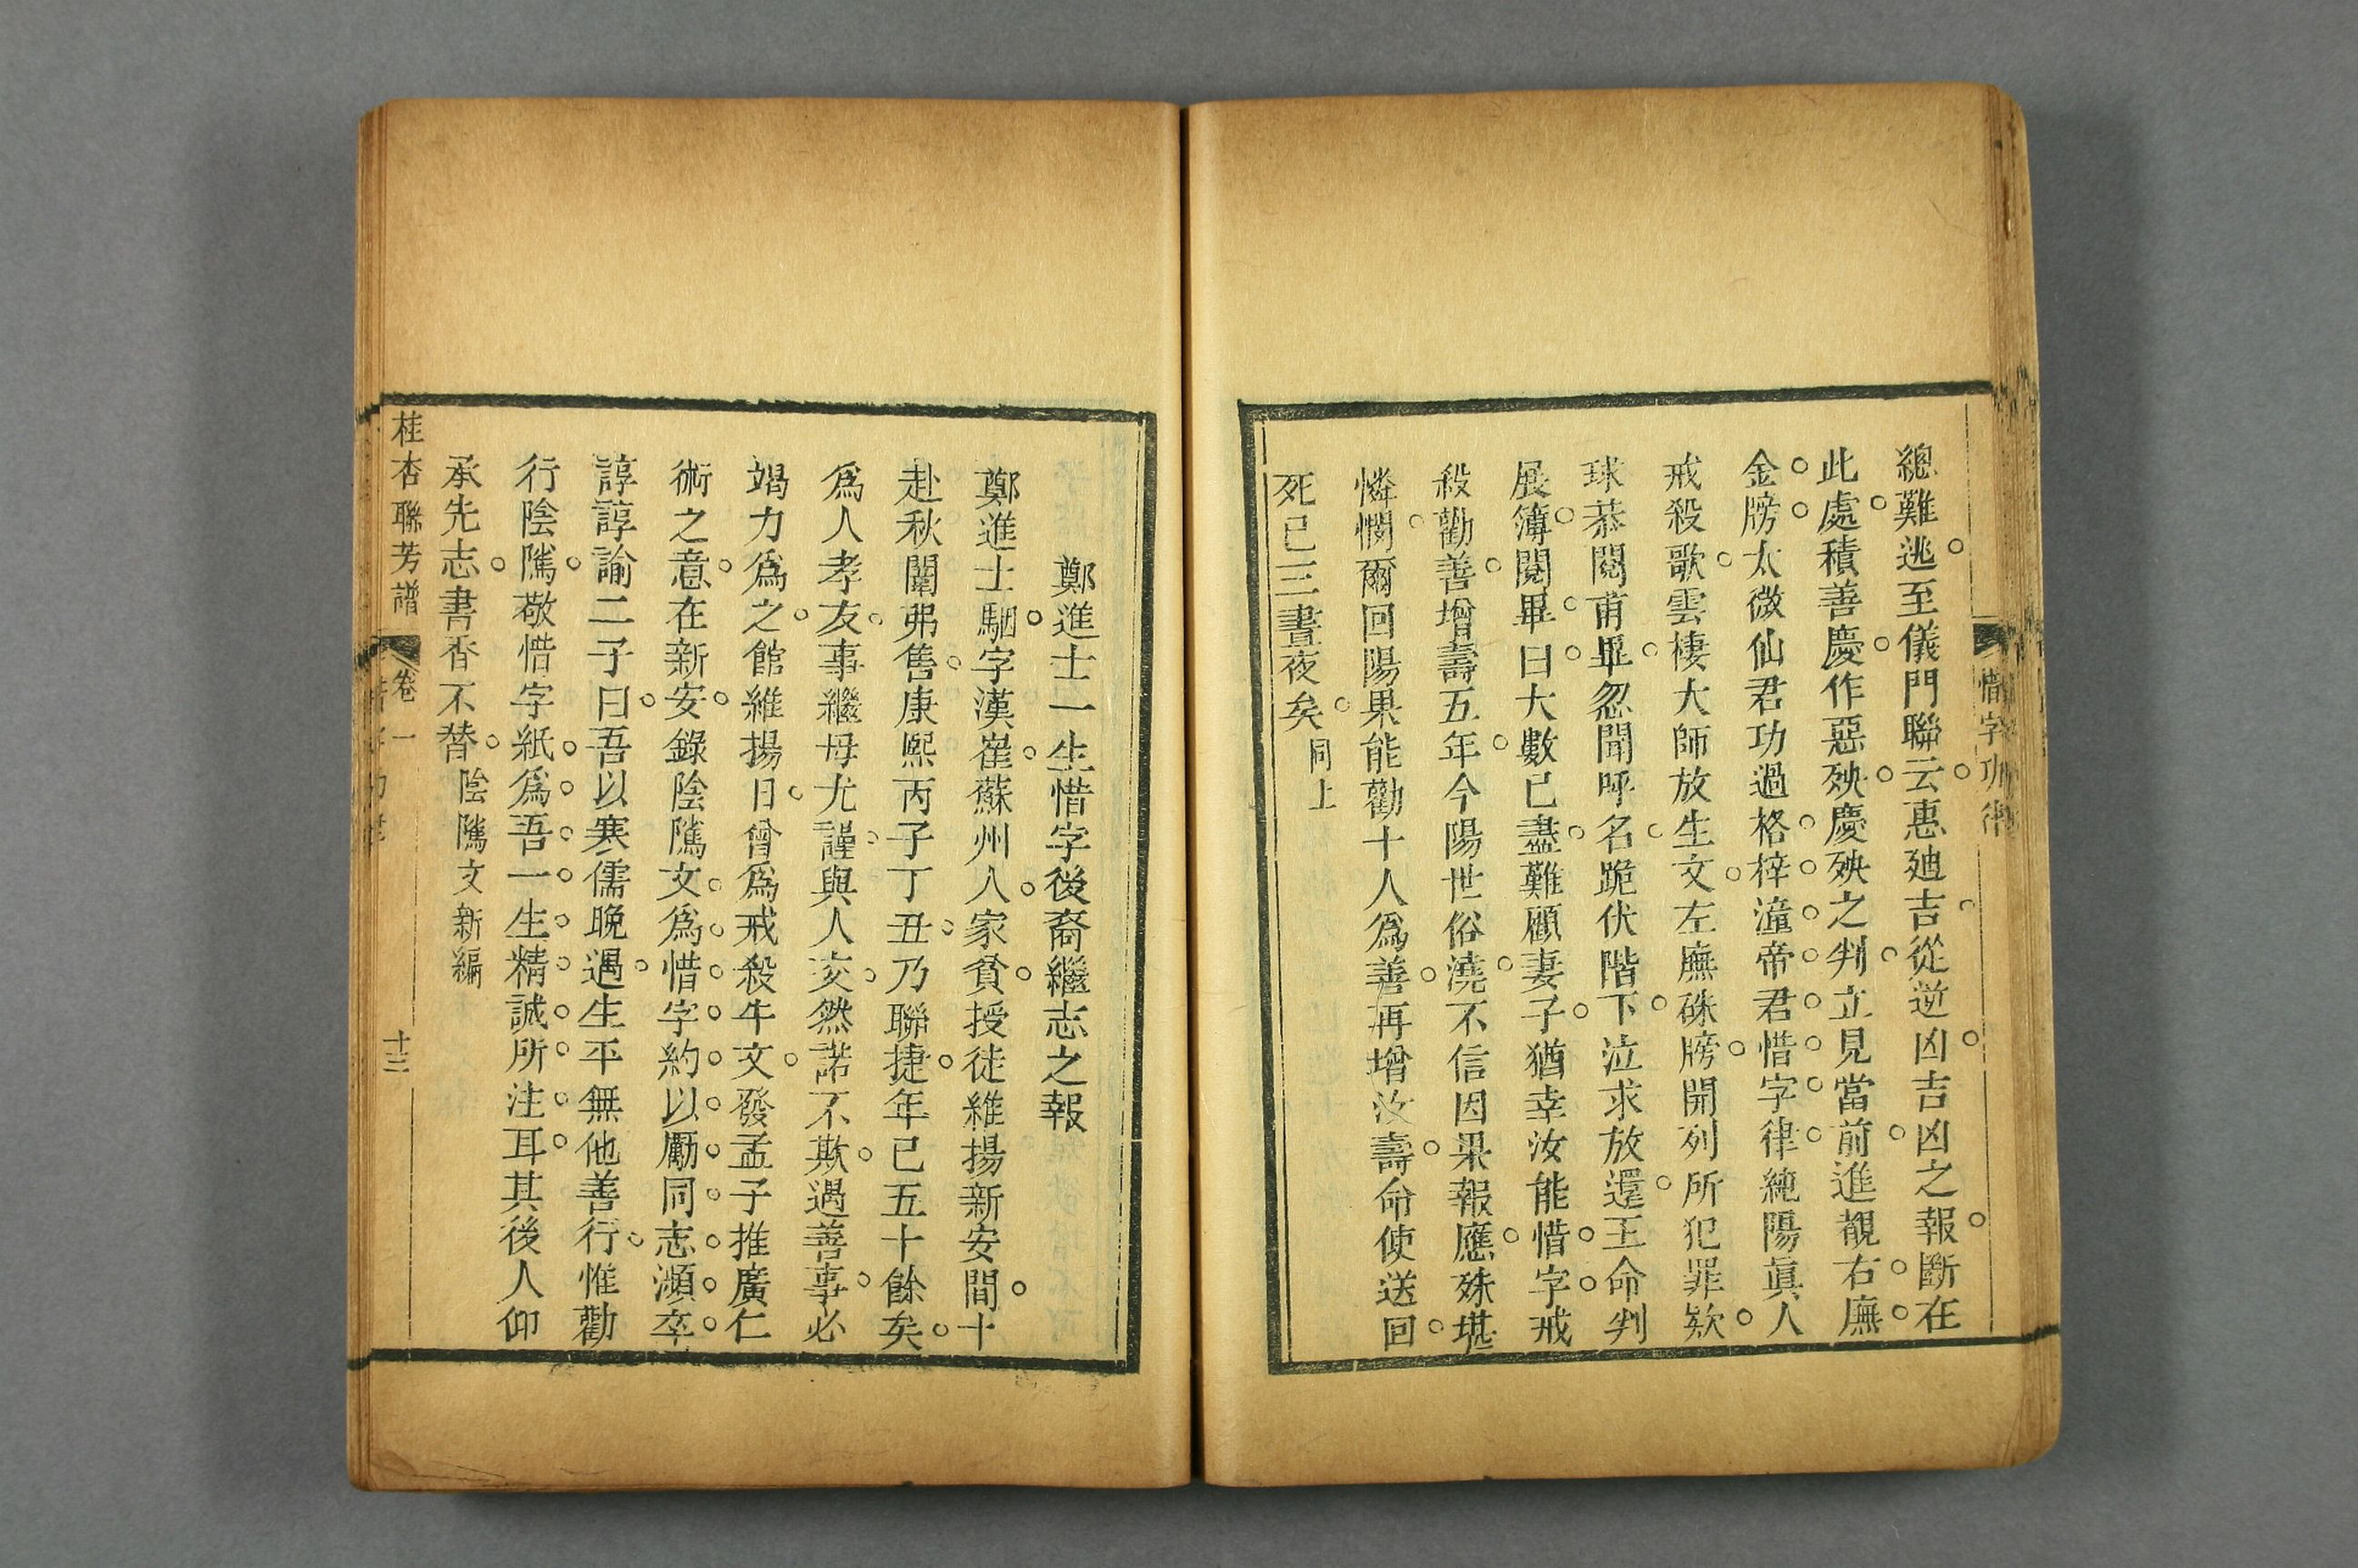 惜字功律
總難逃至儀門聯云惠廸吉從逆凶吉凶之報斷在
此處積善慶作惡殃慶殃之判立見當前進覩右廡
金牓太微仙君功過格梓潼帝君惜字律純陽眞人
戒殺歌雲棲大師放生文左廡硃牓開列所犯罪欵
球恭閱甫畢忽聞呼名跪伏階下泣求放還王命判
展簿閱畢曰大數已盡難顧妻子猶幸汝能惜字戒
殺勸善增壽五年今陽世俗澆不信因果報應殊堪
憐憫爾回陽果能勸十人爲善再增汝壽命使送回
死已三晝夜矣同上
鄭進士一生惜字後裔繼志之報
鄭進士駰字漢崔蘇州人家貧授徒維揚新安間十
赴秋闈弗售康熙丙子丁丑乃聯捷年已五十餘矣
爲人孝友事繼母尤謹與人交然諾不欺遇善事必
竭力爲之館維揚日曾爲戒殺牛文發孟子推廣仁
術之意在新安錄陰隲文爲惜字約以勵同志瀕卒
諄諄諭二子曰吾以寒儒晚遇生平無他善行惟勸
行陰隲敬惜字紙爲吾一生精誠所注耳其後人仰
承先志書香不替陰隲文新編
桂杏聯芳譜 卷一 十三